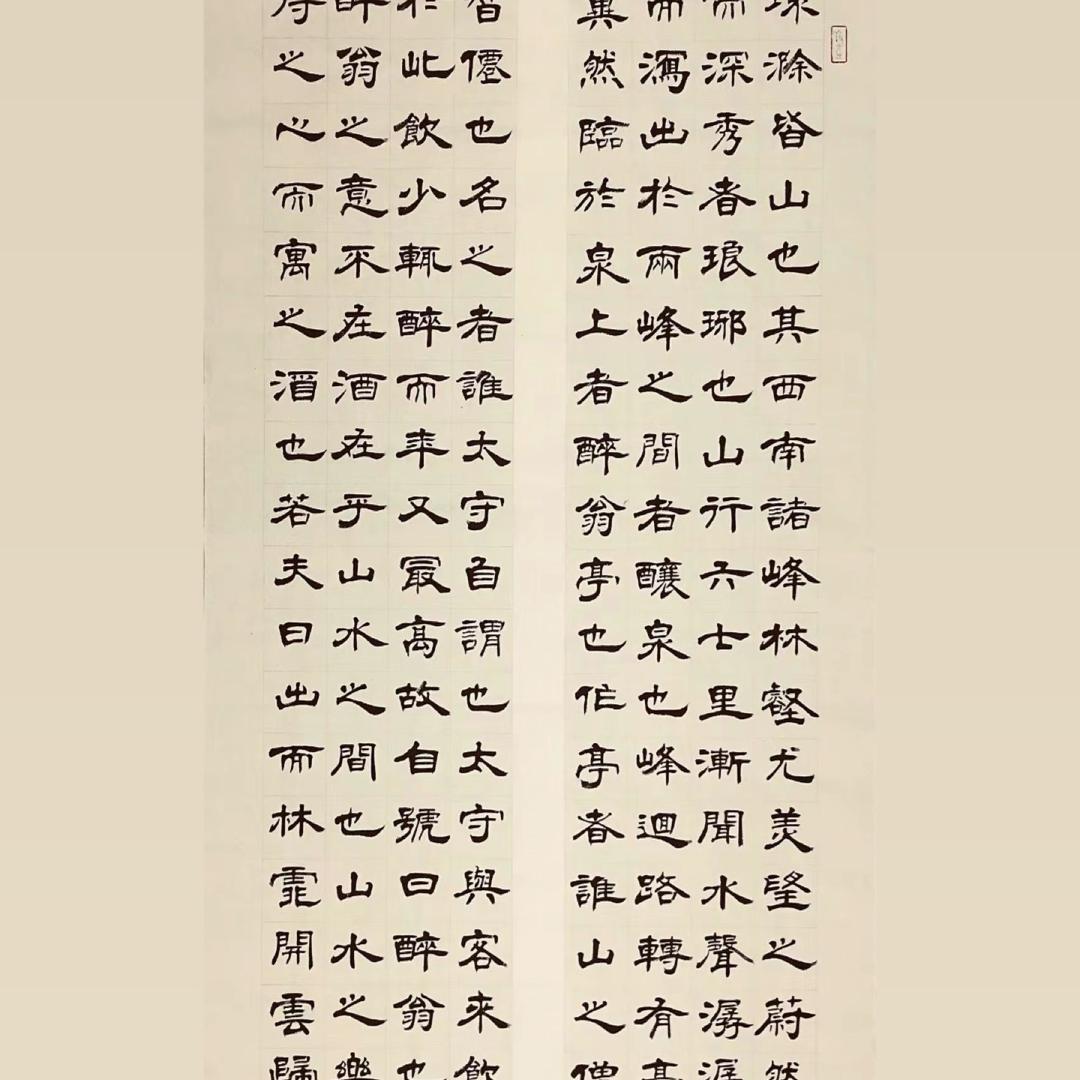 環滁皆山也其西南諸峰林壑尤美望之蔚然
而深秀者琅琊也山行六七里漸聞水聲潺潺
而瀉出於兩峰之間者釀泉也峰迴路轉有亭
翼然臨於泉上者醉翁亭也作亭者誰山之僧
智僊也名之者誰太守自謂也太守與客來飲
於此飲少輒醉而年又最高故自號曰醉翁也
醉翁之意不在酒在乎山水之間也山水之樂
得之心而寓之酒也若夫日出而林霏開雲歸